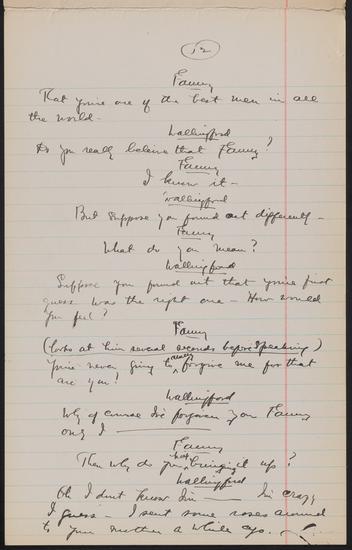 12
Fanny
That you're one of the best men in all
the world -
Wallingford
Do you really believe that Fanny?
Fanny
I know it -
Wallingford
But suppose you found out differently -
Fanny
What do you mean?
Wallingford
Suppose you found out that your first
guess was the right one - How would
you feel?
Fanny
(looks at him several seconds before speaking)
You're never going to forgive me for that
are you?
Wallingford
Why of course I've forgiven you Fanny
only I ———
Fanny
Then why do you keep bringing it up?
Wallingford
Oh I don't know I'm ——— I'm crazy
I guess - I sent some roses around
to your mother a while ago. -